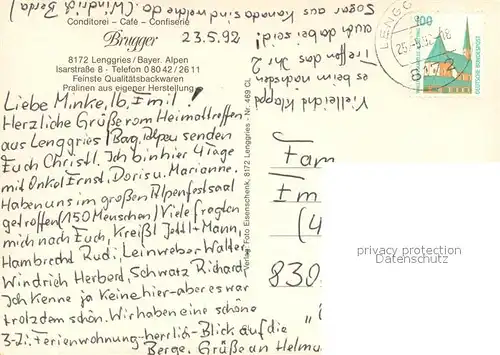 Conditorei - Café - Confiserie
Brugger
23.5.92
8172 Lenggries/Bayer. Alpen
Isarstraße 8 - Telefon 0 80 42 / 26 11
Feinste Qualitätsbackwaren
Pralinen aus eigener Herstellung
Liebe Minke, lb. Emil!
Herzliche Grüße vom Heimattreffen
aus Lenggries/Bay. Alpen senden
Euch Christl. Ich bin hier 4 Tage
mit Onkel Ernst, Doris u. Marianne.
Haben uns im großen Alpenfestsaal
getroffen (150 Menschen) Viele fragten
mich nach Euch, Kreißl Jettl-Mann,
Hambrecht Rudi, Leinweber Walter,
Windrich Herbord, Schwatz Richard,
Ich kenne ja Keine hier-aber es war
trotzdem schön. Wir haben eine schöne
3-Zi. Ferienwohnung-herrlich-Blick auf die
Berge. Grüße an Helmu
Vielleicht klappt
es beim nächsten
Treffen des Ihr 2
auch da bei seid!
Sogar aus Kanada sind welche da (Windrich Berta)
Verlag: Foto Eisenschenk, 8172 Lenggries - Nr. 469 CL
LENGG
25.-5.92-18
8172
100
DEUTSCHE BUNDESPOST
Fam
Em
(4
830
privacy protection
Datenschutz